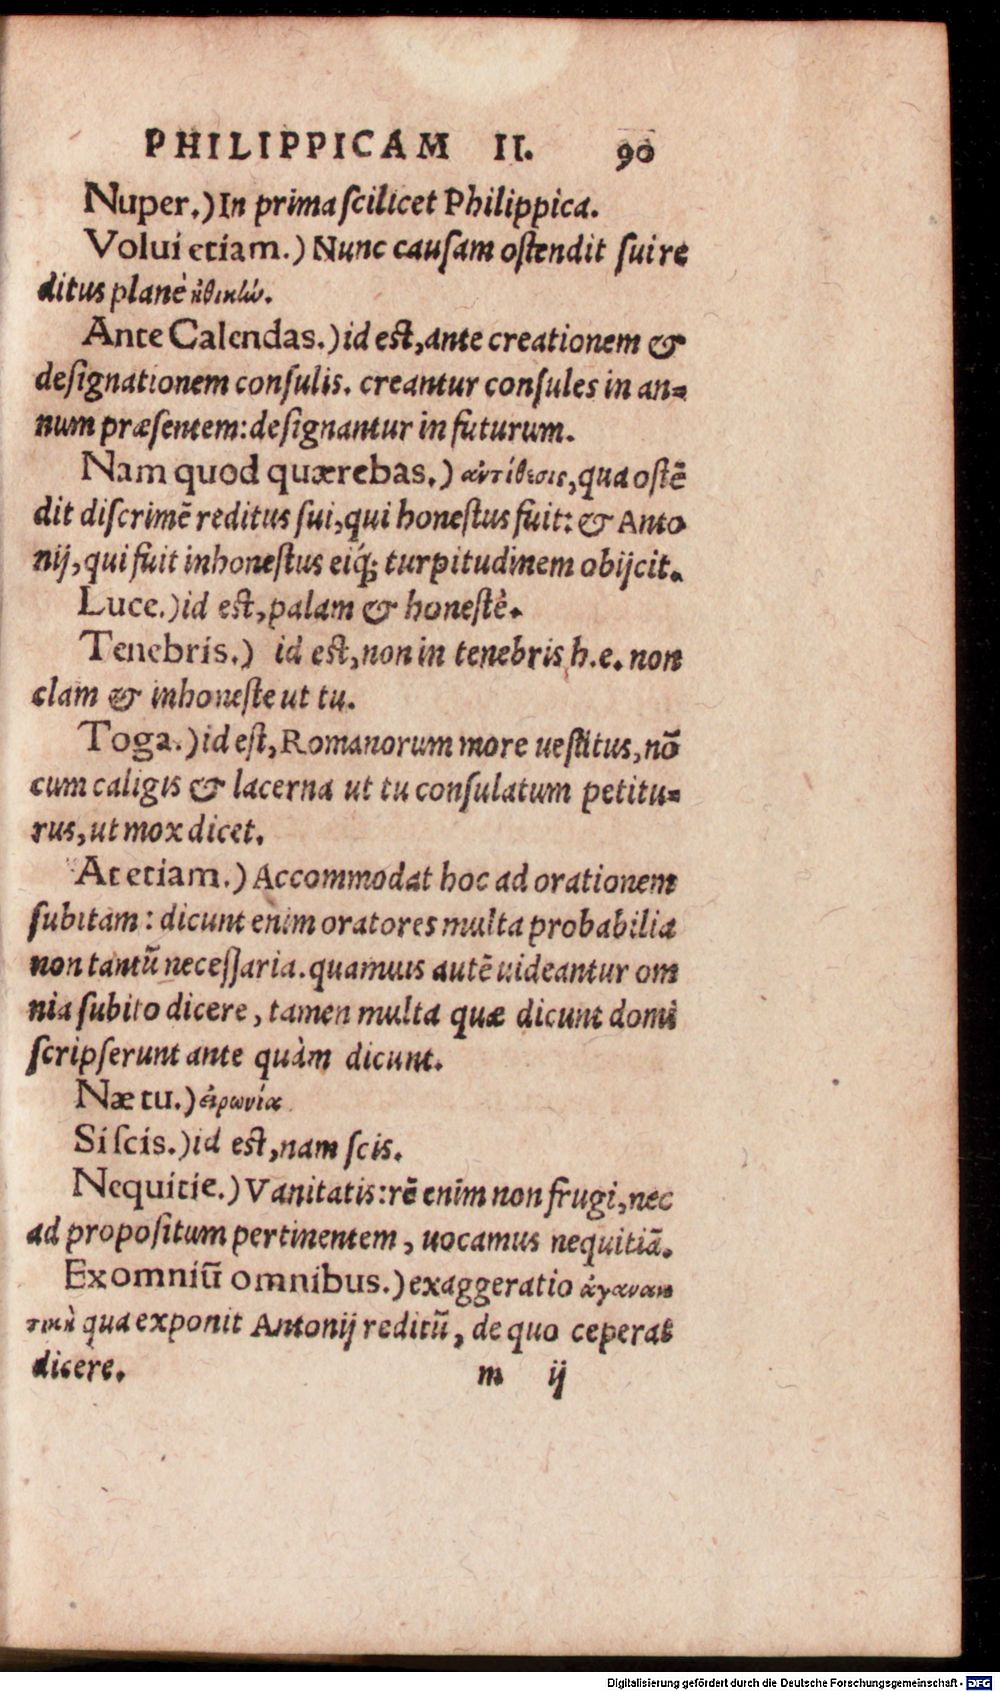 PHILIPPICAM II. 90
Nuper.) In prima scilicet Philippica.
Volui etiam.) Nunc causam ostendit sui re
ditus planè ἠθικῶς.
Ante Calendas.) id est, ante creationem &
designationem consulis. creantur consules in an=
num præsentem: designantur in futurum.
Nam quod quærebas.) ἀντίθεσις, qua ostē
dit discrimē reditus sui, qui honestus fuit: & Anto
nij, qui fuit inhonestus eiq́; turpitudinem obijcit.
Luce.) id est, palam & honestè.
Tenebris.) id est, non in tenebris h.e. non
clam & inhoneste ut tu.
Toga.) id est, Romanorum more uestitus, nō
cum caligis & lacerna ut tu consulatum petitu=
rus, ut mox dicet.
At etiam.) Accommodat hoc ad orationem
subitam: dicunt enim oratores multa probabilia
non tantū necessaria. quamuis autē uideantur om
nia subito dicere, tamen multa quæ dicunt domi
scripserunt ante quàm dicunt.
Næ tu.) εἰρωνία
Si scis.) id est, nam scis.
Nequitie.) Vanitatis: rē enim non frugi, nec
ad propositum pertinentem, uocamus nequitiā.
Ex omniū omnibus.) exaggeratio ἀγανακ
τικὴ qua exponit Antonij reditū, de quo ceperat
dicere. m ij
Digitalisierung gefördert durch die Deutsche Forschungsgemeinschaft - DFG